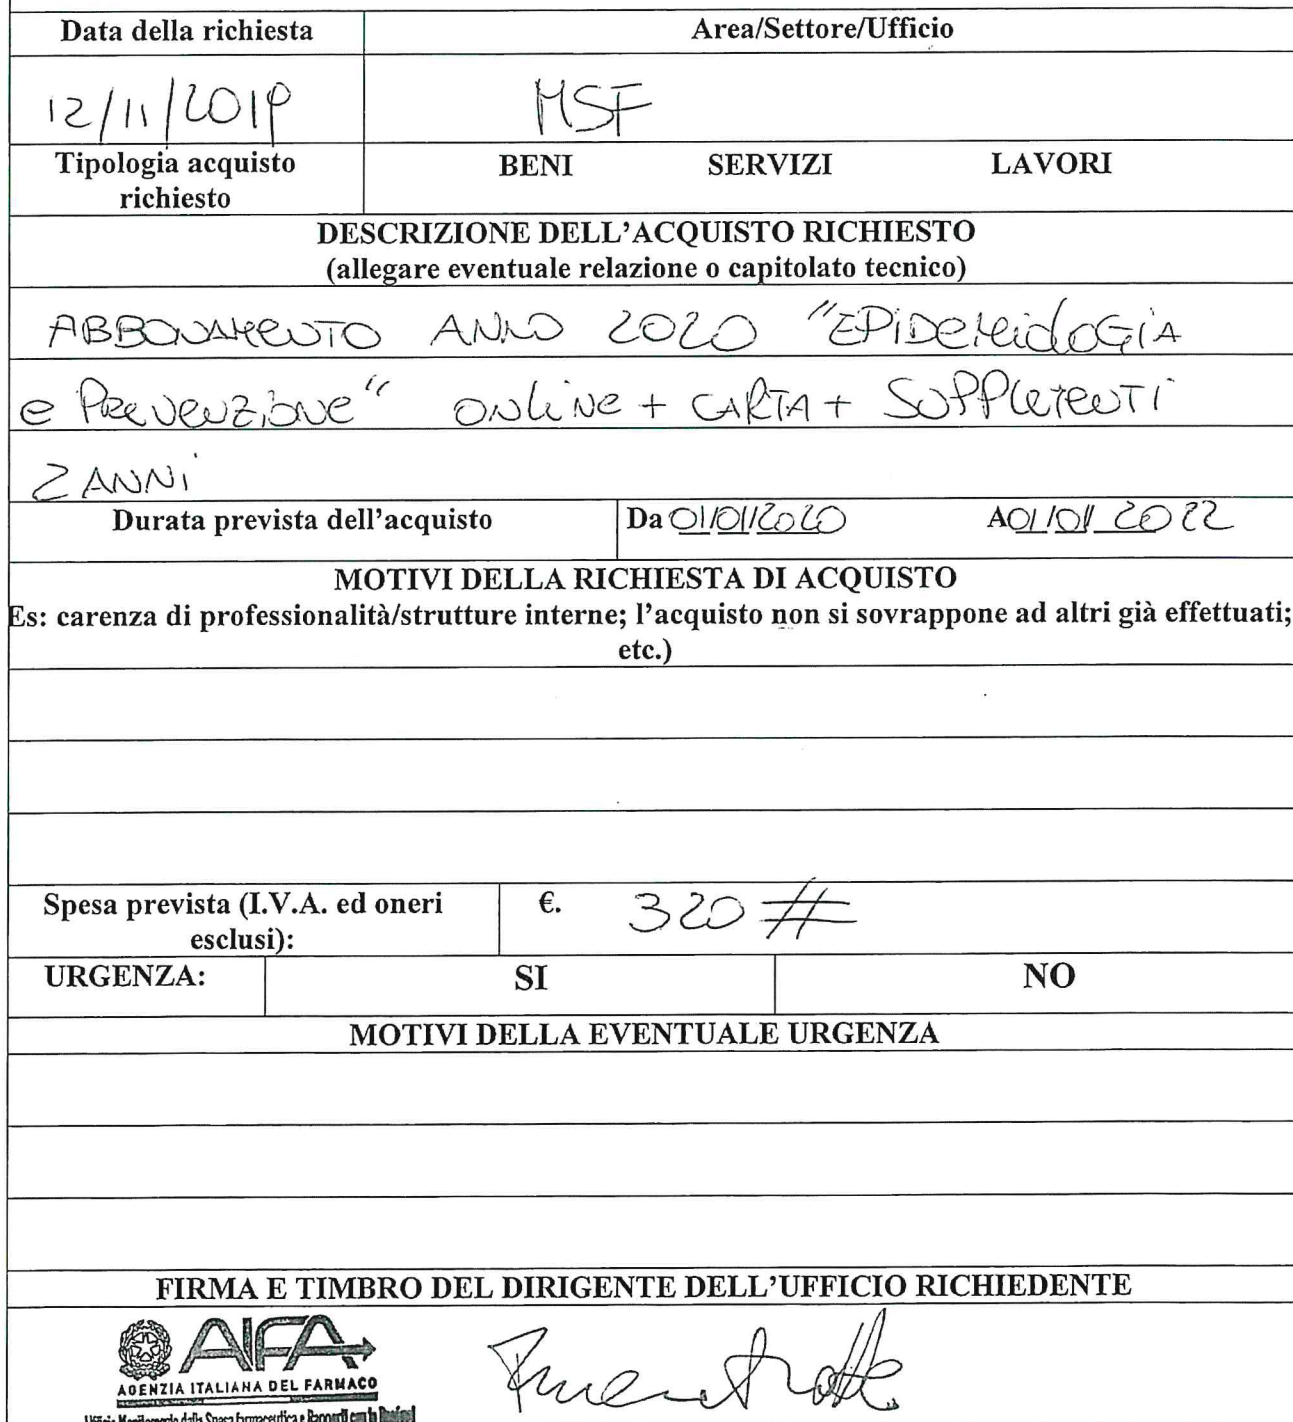 Data della richiesta Area/Settore/Ufficio
12/11/2019 MSF
Tipologia acquisto BENI SERVIZI LAVORI
richiesto
DESCRIZIONE DELL'ACQUISTO RICHIESTO
(allegare eventuale relazione o capitolato tecnico)
ABBONAMENTO ANNO 2020 "EPIDEMIOLOGIA
e PREVENZIONE" ONLINE + CARTA + SUPPLEMENTI
2 ANNI
Durata prevista dell'acquisto Da 01/01/2020 A 01/01/2022
MOTIVI DELLA RICHIESTA DI ACQUISTO
Es: carenza di professionalità/strutture interne; l'acquisto non si sovrappone ad altri già effettuati;
etc.)
Spesa prevista (I.V.A. ed oneri €. 320 #
esclusi):
URGENZA: SI NO
MOTIVI DELLA EVENTUALE URGENZA
FIRMA E TIMBRO DEL DIRIGENTE DELL'UFFICIO RICHIEDENTE
AIFA
AGENZIA ITALIANA DEL FARMACO
Ufficio Monitoraggio della Spesa farmaceutica e Rapporti con le Regioni